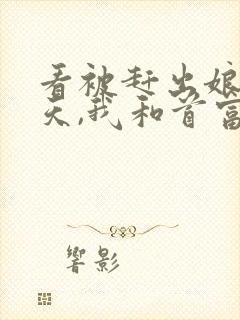 看被赶出娘
天,我和首富
響影